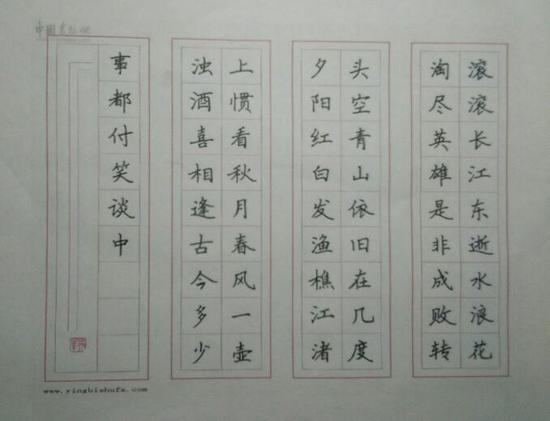 滚滚长江东逝水浪花
淘尽英雄是非成败转
头空青山依旧在几度
夕阳红白发渔樵江渚
上惯看秋月春风一壶
浊酒喜相逢古今多少
事都付笑谈中
www.yingbishufa.com